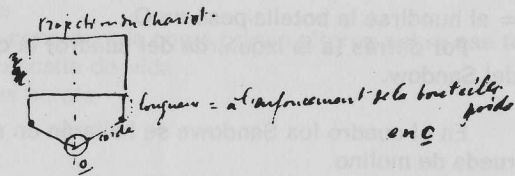 projection du Chariot.
longueur = à l'enfoncement de la bouteille
poids
corde
en C
O